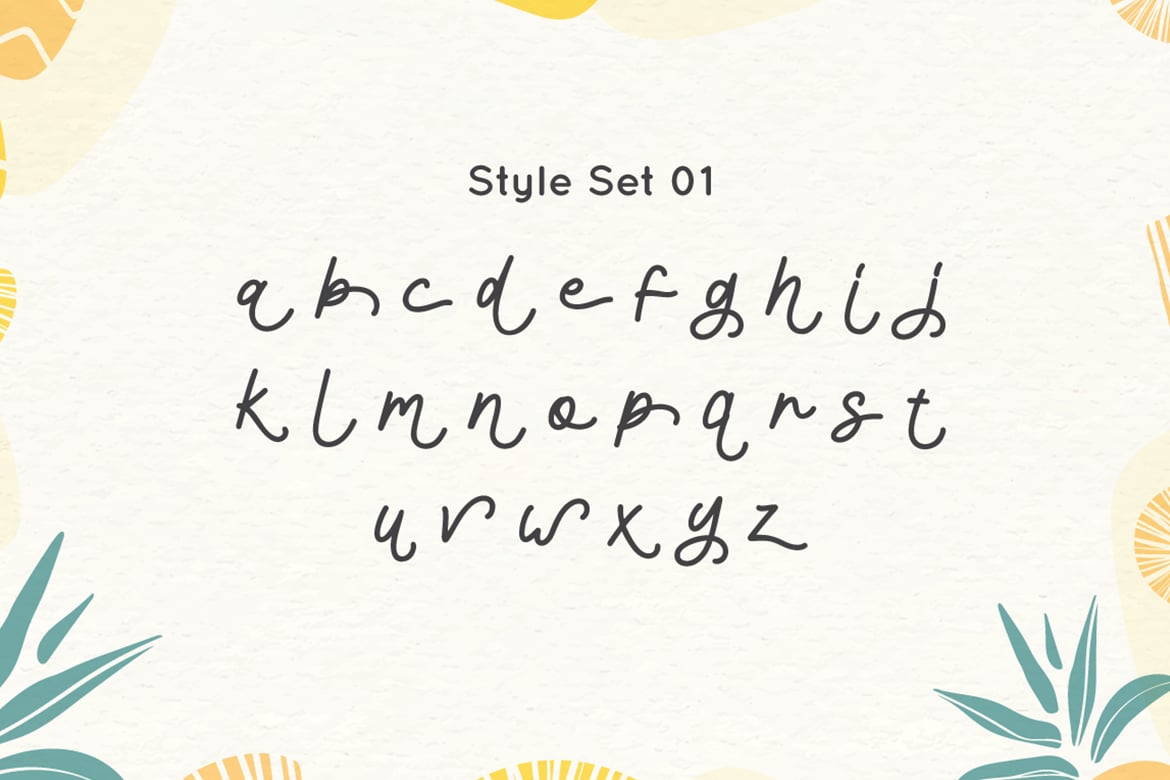 Style Set 01
a b c d e f g h i j
k l m n o p q r s t
u v w x y z